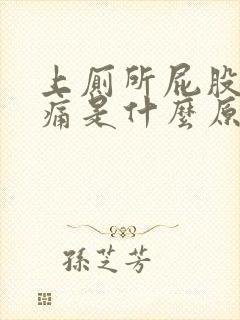 上厕所屁股
痛是什麼原
孫芝芳